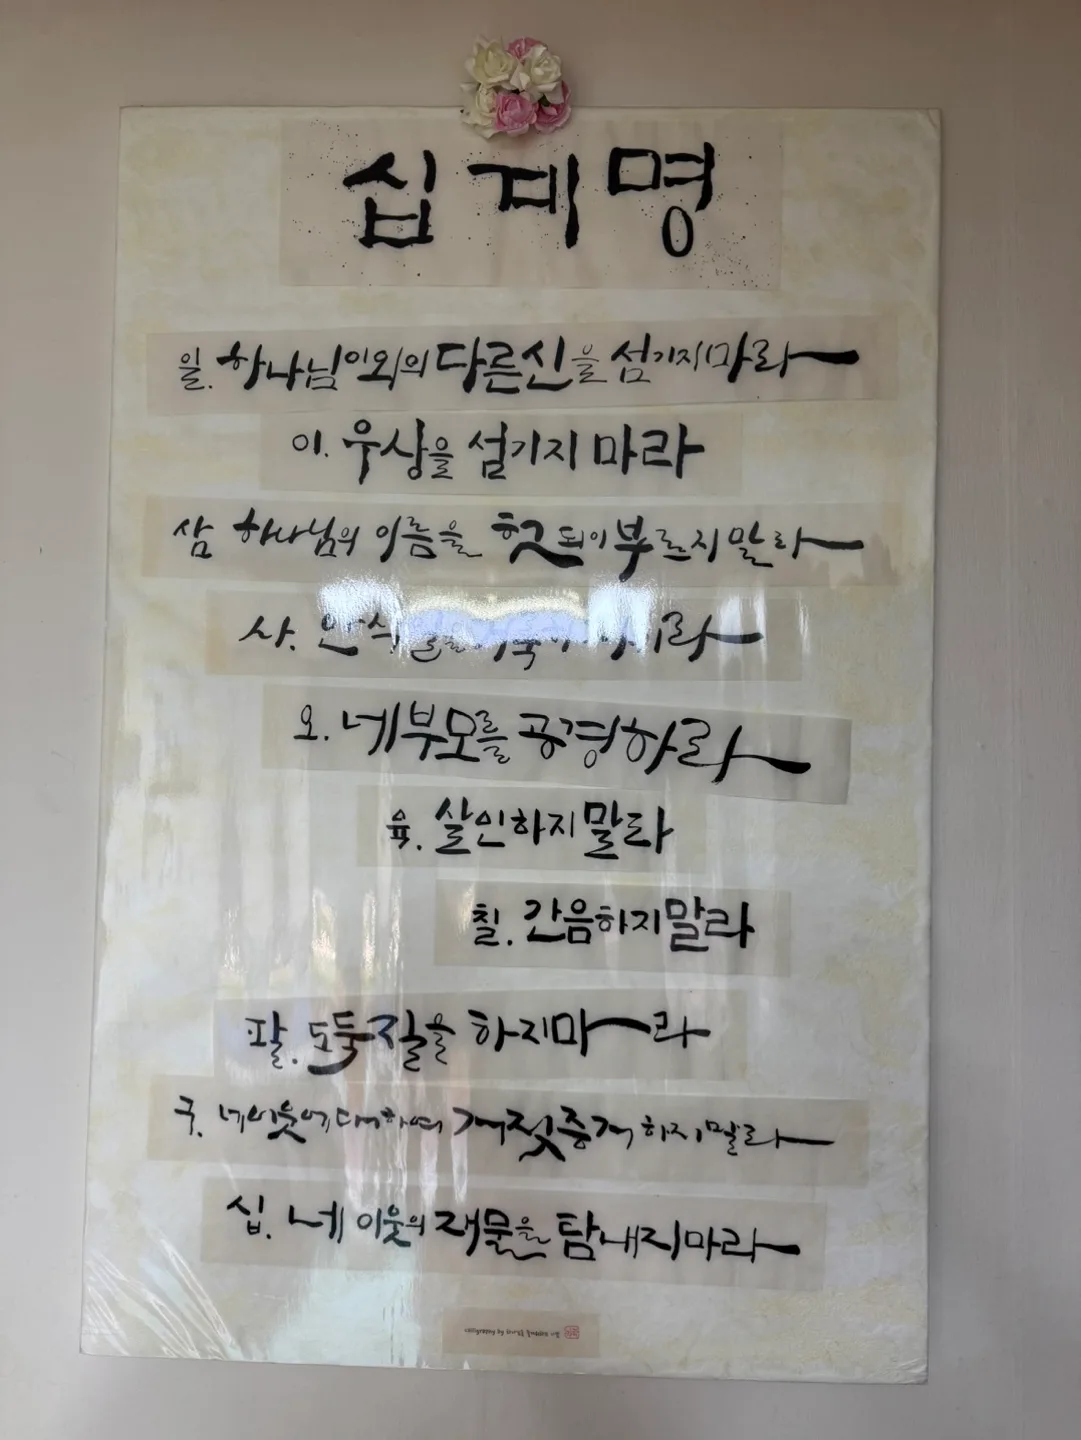 십계명
일. 하나님이외의 다른신을 섬기지마라
이. 우상을 섬기지 마라
삼 하나님의 이름을 헛되이부르지말라
사.
오. 네부모를 공경하라
육. 살인하지말라
칠. 간음하지말라
팔. 도둑질을 하지마라
구. 네이웃에대하여 거짓증거 하지말라
십. 네 이웃의 재물을 탐내지마라
calligraphy by